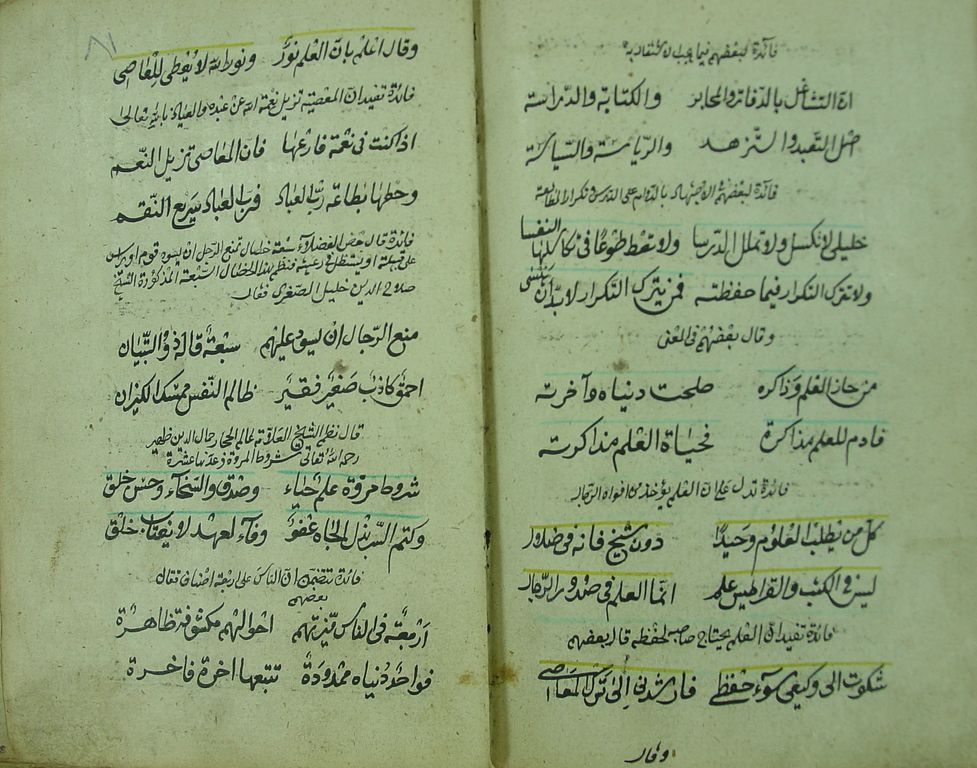 فائدة لبعضهم فيما يجب ان يتفاد به
ان التشاغل بالدفاتر والمحابر والكتابة والدراسة
اصل التعبد والتزهد والرياسة والسياسة
فائدة لبعضهم في الاجتهاد بالدوام على الدرس وتكرار المطالعة
خليلي لا تكسل ولا تملل الدرسا ولا تعط طوعا في تكاسلها النفسا
ولا تترك التكرار فيما حفظته فمن يترك التكرار لا بد ان ينسى
وقال بعضهم في المعنى
من حاز العلم وذاكره صلحت دنياه وآخرته
فادم للعلم مذاكرة فحياة العلم مذاكرته
فائدة تدل على ان العلم يؤخذ من افواه الرجال
كل من يطلب العلوم وحيدا دون شيخ فانه في ضلال
ليس في الكتب والقراطيس علم انما العلم في صدور الرجال
فائدة تفيد ان العلم يحتاج صاحبه لحفظه قال بعضهم
شكوت الى وكيعي سوء حفظي فارشدني الى ترك المعاصي
وقال
٨١
وقال اعلم بان العلم نور ونور الله لا يعطى للعاصي
فائدة تفيد ان المعصية تزيل نعمة الله عن عبده والعياذ بالله تعالى
اذا كنت في نعمة فارعها فان المعاصي تزيل النعم
وحطها بطاعة رب العباد فرب العباد سريع النقم
فائدة قال بعض الفضلاء سبعة خصال تمنع الرجل ان يسود قومه او يراس
على قبيلة او يستظل في رعيته فنظم هذه الخصال السبعة المذكورة الشيخ
صلاح الدين خليل الصفدي فقال
منع الرجال ان يسود عليهم سبعة قاله ذو التبيان
احمق كاذب صغير فقير ظالم النفس ممسك الكفران
قال نظم الشيخ العلامة عالم الحجاز جمال الدين ظهير
رحمه الله تعالى شروط المروة وعدتها عشرة
شروط مروة علم حياء وصدق والسخاء وحسن خلق
وكتم السر بذل الجاه عفو وفاء لعهد لا يعتاب خلق
فائدة تتضمن ان الناس على اربعة اصناف فقال
بعضهم
اربعة في الناس ميزتهم احوالهم مكشوفة ظاهرة
فواحد دنياه ممدودة تتبعها اخرة فاخرة